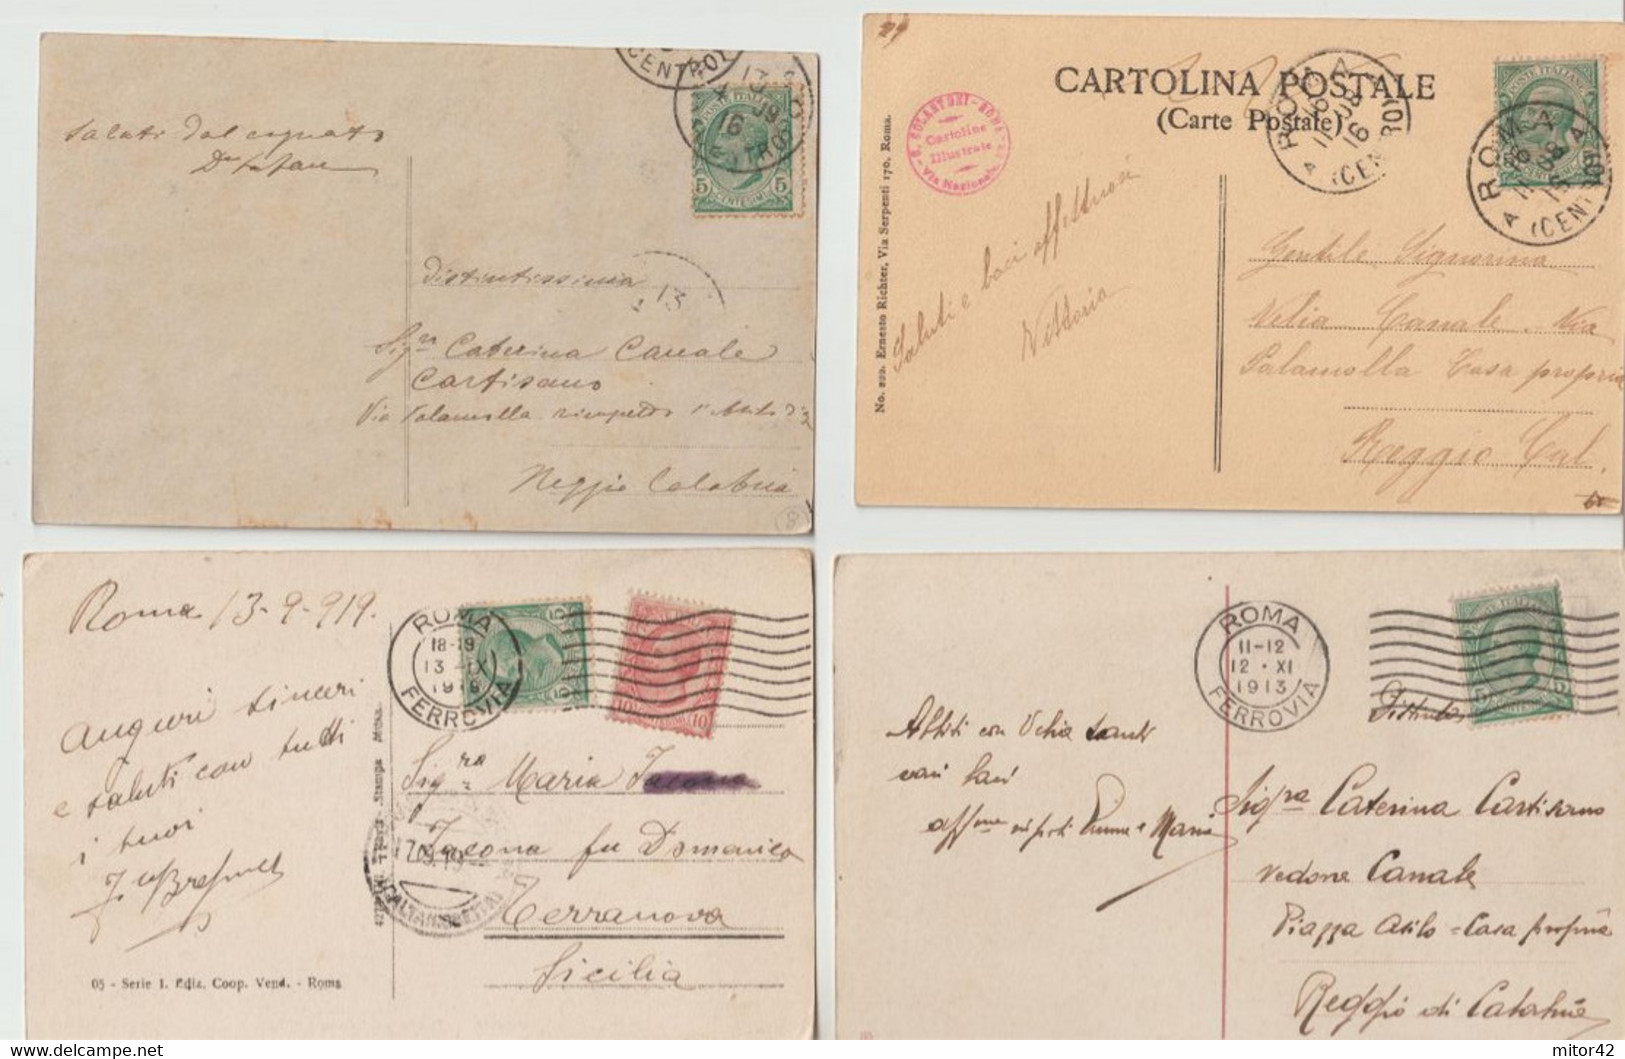 (CENTRO)
13
09
16
POSTE ITALIANE
5 5
CENTESIMI
Saluti dal cognato
Distintissima
13
Sigra Caterina Canale
Cartisano
Via Palamolla rimpetto
Reggio Calabria
CARTOLINA POSTALE
(Carte Postale)
ROMA
16
(CENTRO)
POSTE ITALIANE
ROMA
(CENTRO)
ROMA
Cartoline
Illustrate
Via Nazionale
No. 220. Ernesto Richter, Via Serpenti 170, Roma.
Saluti e baci affettuosi
Vittoria
Gentile Signorina
Velia Canale. Via
Palamolla Casa propria
Reggio Cal.
Roma 13-9-919.
ROMA
18-19
13 IX
1919
FERROVIA
5 5
10 10
Auguri sinceri
e saluti con tutti
i tuoi
Sigra Maria
Iacona fu Domenico
(CALTANISSETTA)
Terranova
Sicilia
05 - Serie 1. Ediz. Coop. Vend. - Roma
ROMA
11-12
12 · XI
1913
FERROVIA
POSTE ITALIANE
5 5
CENTESIMI
con Velia tanti
Maria
Sigra Caterina Cartisano
Vedova Canale
Piazza Asilo = Casa propria
Reggio di Calabria
delcampe.net
mitor42